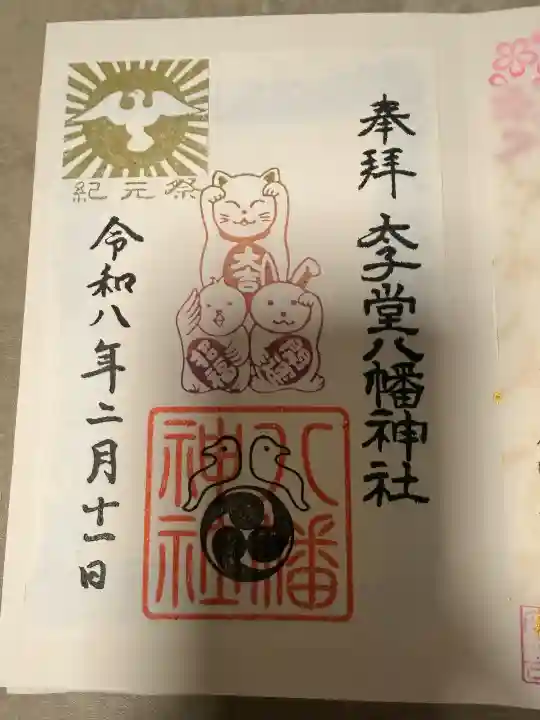 奉拝
太子堂八幡神社
紀元祭
大吉
招福
八幡
神社
令和八年二月十一日